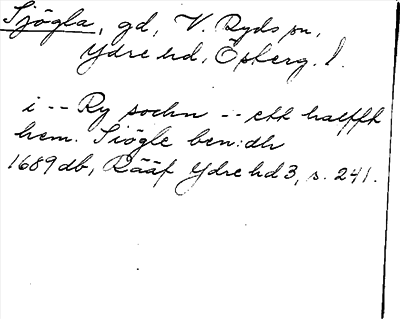 Sjögla, gd, V. Ryds sn,
Ydre hd, Österg. l.
i -- Ry sochn -- ett halfft
hem. Siögle ben:dh
1689 db, Rääf Ydre hd 3, s. 241.